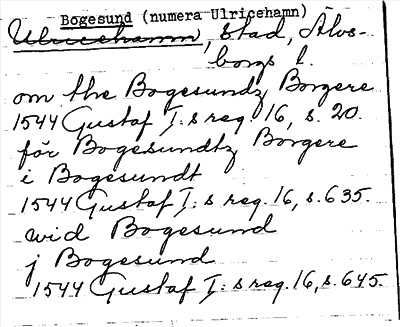 Bogesund (numera Ulricehamn)
Ulricehamn, stad, Älvs-
borgs l.
om the Bogesundz Borgere
1544 Gustaf I:s reg. 16, s. 20.
för Bogesundtz Borgere
i Bogesundt
1544 Gustaf I:s reg. 16, s. 635.
wid Bogesund
j Bogesund
1544 Gustaf I:s reg. 16, s. 645.